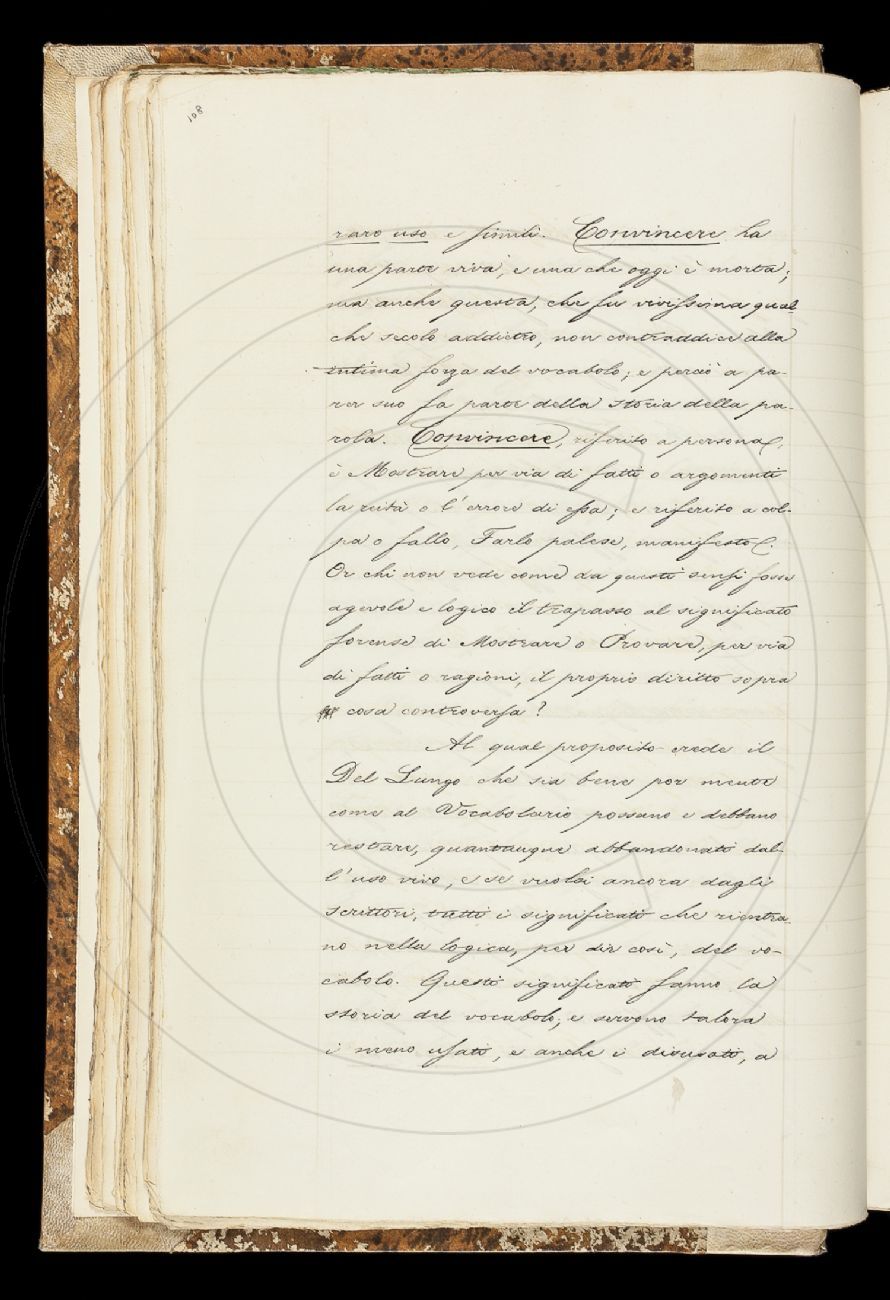 108
raro uso e simili. Convincere ha
una parte viva, e una che oggi è morta;
ma anche questa, che fu vivissima qual-
che secolo addietro, non contraddice alla
intima forza del vocabolo; e perciò a pa-
rer suo fa parte della storia della pa-
rola. Convincere, riferito a persona,
è Mostrare per via di fatti o argomenti
la reità o l'errore di essa; e riferito a col-
pa o fallo, Farlo palese, manifesto.
Or chi non vede come da questi sensi fosse
agevole e logico il trapasso al significato
forense di Mostrare o Provare, per via
di fatti o ragioni, il proprio diritto sopra
cosa controversa?
Al qual proposito crede il
Del Lungo che sia bene por mente
come al Vocabolario possano e debbano
restare, quantunque abbandonati dal-
l'uso vivo, e se vuolsi ancora dagli
scrittori, tutti i significati che rientra-
no nella logica, per dir così, del vo-
cabolo. Questi significati fanno la
storia del vocabolo, e servono talora
i meno usati, e anche i disusati, a